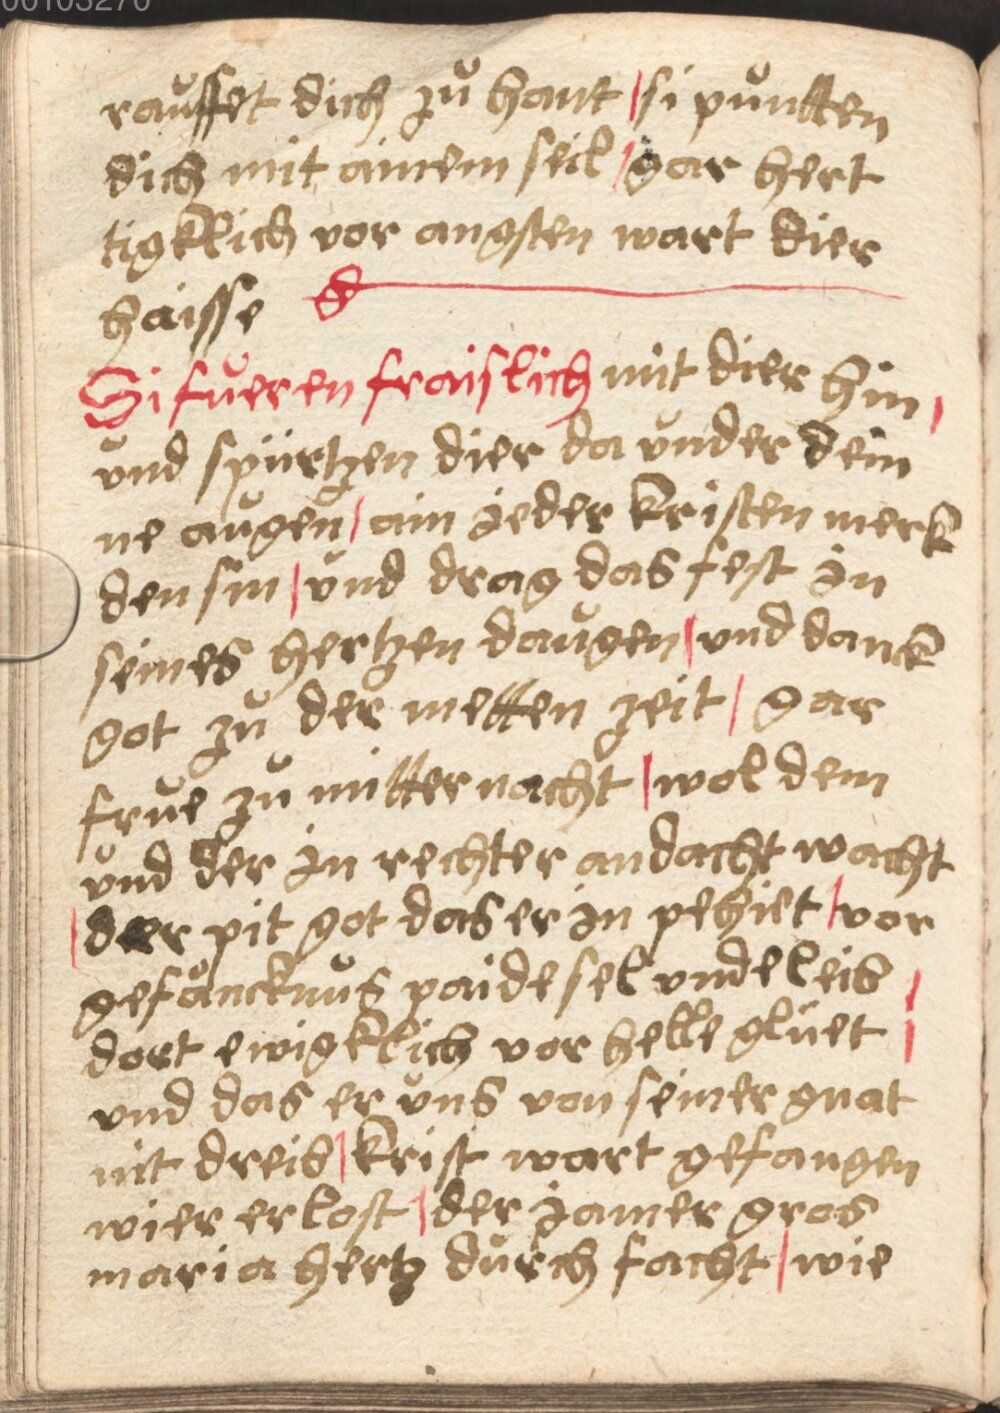 00103270
rauffet dich zů hant | si půntten
dich mit ainem seil | gar hert
tigklich vor angsten wart dier
haisse
Si fůeren fraislich mit dier hin |
vnd spürtzen dier da vnder dein
ne augen | ain jeder kristen merk
den sin | vnd drag das fest in
seines hertzen daugen | vnd danck
got zů der metten zeit | gar
frůe zů mitternacht | wol dem
vnd der in rechter andacht wacht
| der pit got das er in pehiet | vor
gefäncknus paide sel vnd leib |
dort ewigklich vor helle glůet |
vnd das er vns von seiner gnat
nit dreib | krist wart gefangen
wier erlost | der jamer gros
maria hertz durch facht | wie